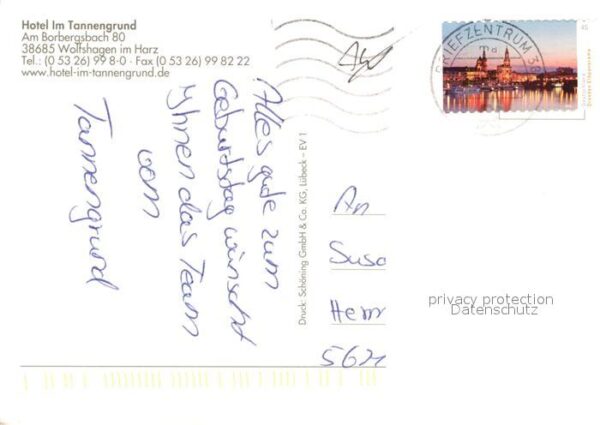 Hotel Im Tannengrund
Am Borbergsbach 80
38685 Wolfshagen im Harz
Tel.: (0 53 26) 99 8-0 · Fax (0 53 26) 99 82 22
www.hotel-im-tannengrund.de
Alles gute zum
Geburtstag wünscht
Ihnen das Team
vom
Tannengrund
Druck: Schöning GmbH & Co. KG, Lübeck – EV 1
BRIEFZENTRUM 38
An
Susa
Heim
5621
privacy protection
Datenschutz